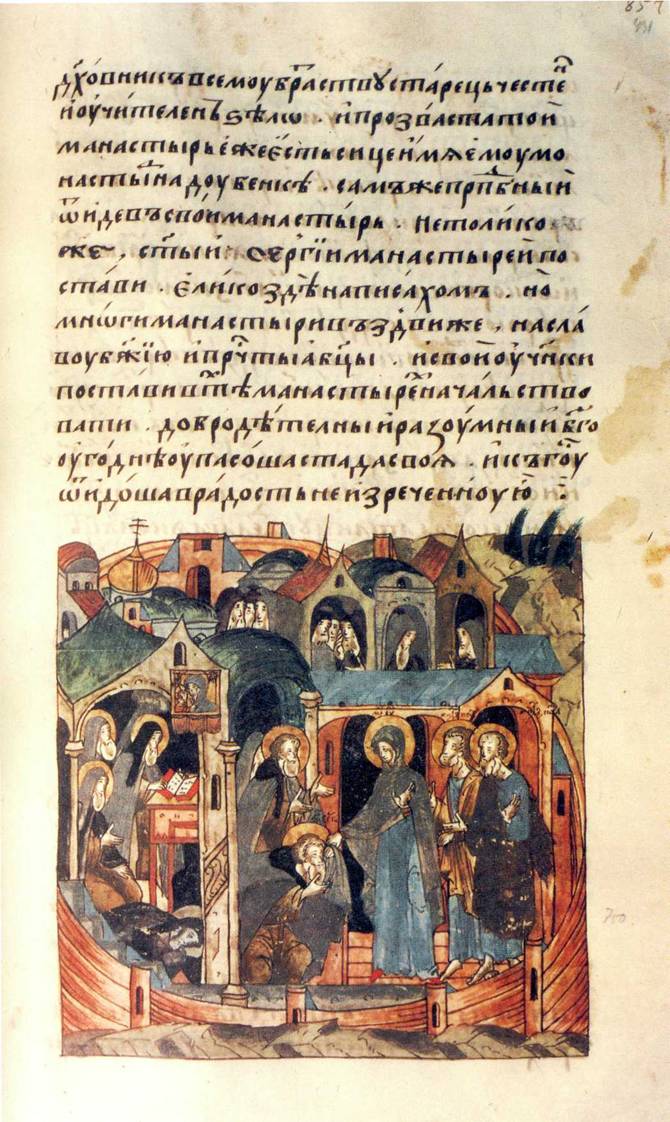 857
431
дх҃овникъ всемоу бра́ству ста́рець честе́н
и оучи́теленъ ѕѣлѡ . и прозва́ста той
манасты́рь е́же е́сть сице и́мя емоу мо
насты́рь на доубенкѣ . самъ же прпⷣбный
ѿи́де въ свой манасты́рь . не толи́ко
же , ст҃ы́й се́ргїи манастыре́й по
ста́ви . ели́ко здѣ написа́хомъ . но
мнѡ́ги манастыри въздви́же , на сла́
воу бж҃їю и прчⷭты́а бц҃ы . и свой оучн҃ки
поста́ви в тѣ́ манастыре́ нача́льство
вати . доброде́телный и разоу́мный бг҃о
оуго́днѣ оупасо́ша ста́да своя . и къ гоⷭ҇у
ѿидо́ша в ра́дость неизрече́нноую :
700.